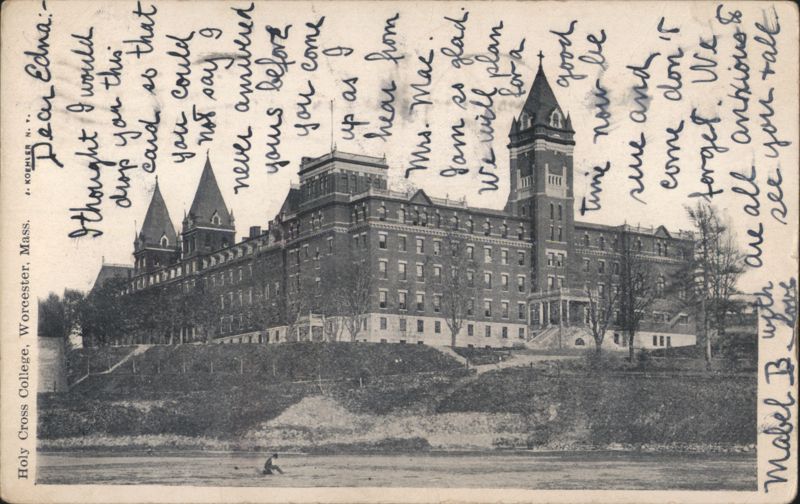 Dear Edna:-
I thought I would
drop you this
card so that
you could
not say I
never answered
yours before
you come
up as I
hear from
Mrs. Mac.
I am so glad.
We will plan
for a
good
time now be
sure and
come don't
forget. We
are all anxious to
see you & all.
with love
Mabel B.
Holy Cross College, Worcester, Mass.
J. KOEHLER N. Y.